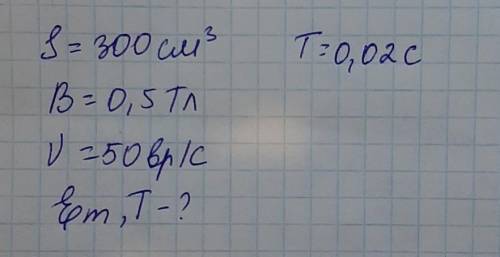 S = 300 см³ T = 0,02 с
B = 0,5 Тл
ν = 50 вр/с
Ɛm, T - ?